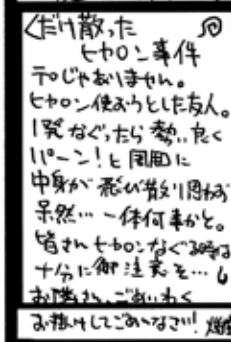 くだけ散った
ヒヤロン事件
テロじゃありません。
ヒヤロン使おうとした友人。
1発なぐったら勢い良く
パーン!と周囲に
中身が飛び散り思わず
呆然…一体何事かと。
皆さんヒヤロンなぐる時は
十分に御注意を…
お隣さん、ごめいわく
おかけしてごめんなさい!